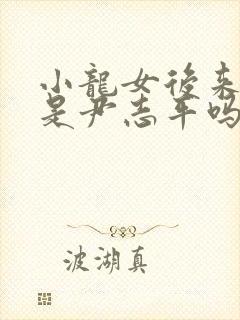 小龍女後来
是尹志平吗
波湖真